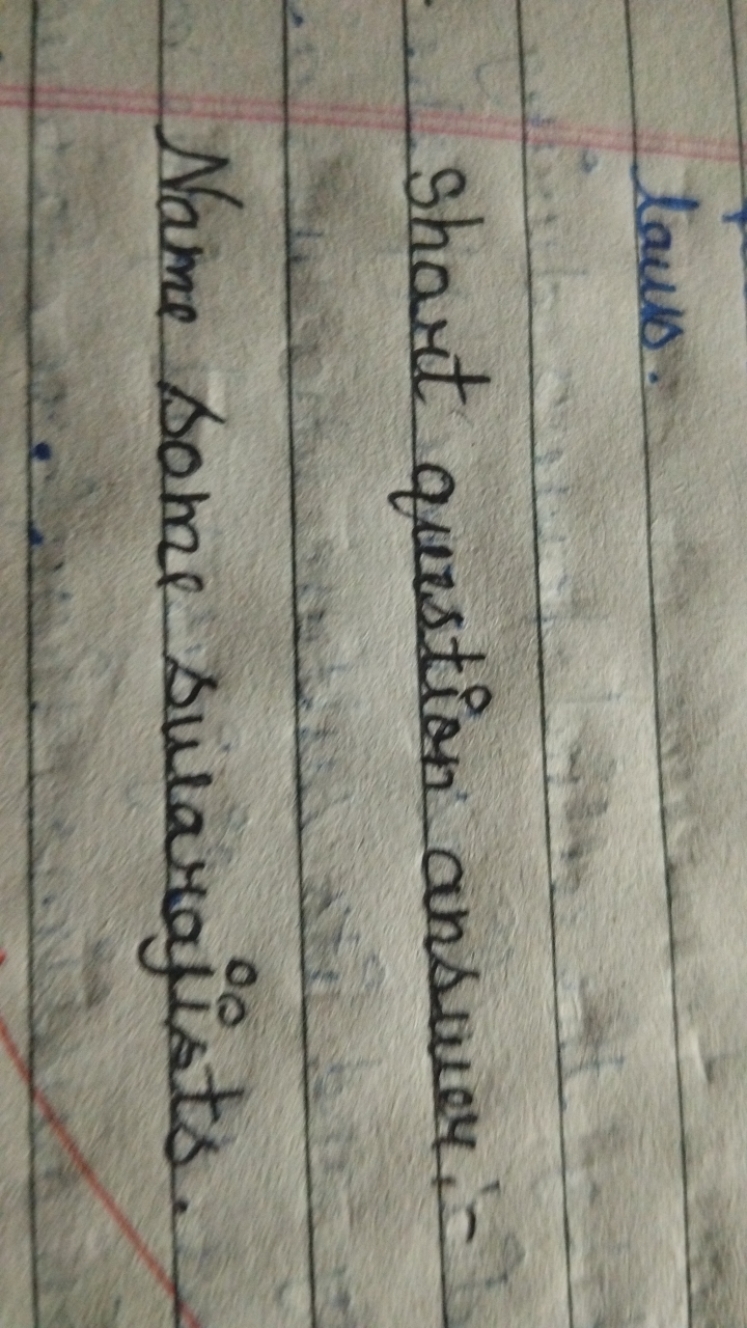 laws.
Short question answer :-
Name some sularajists.